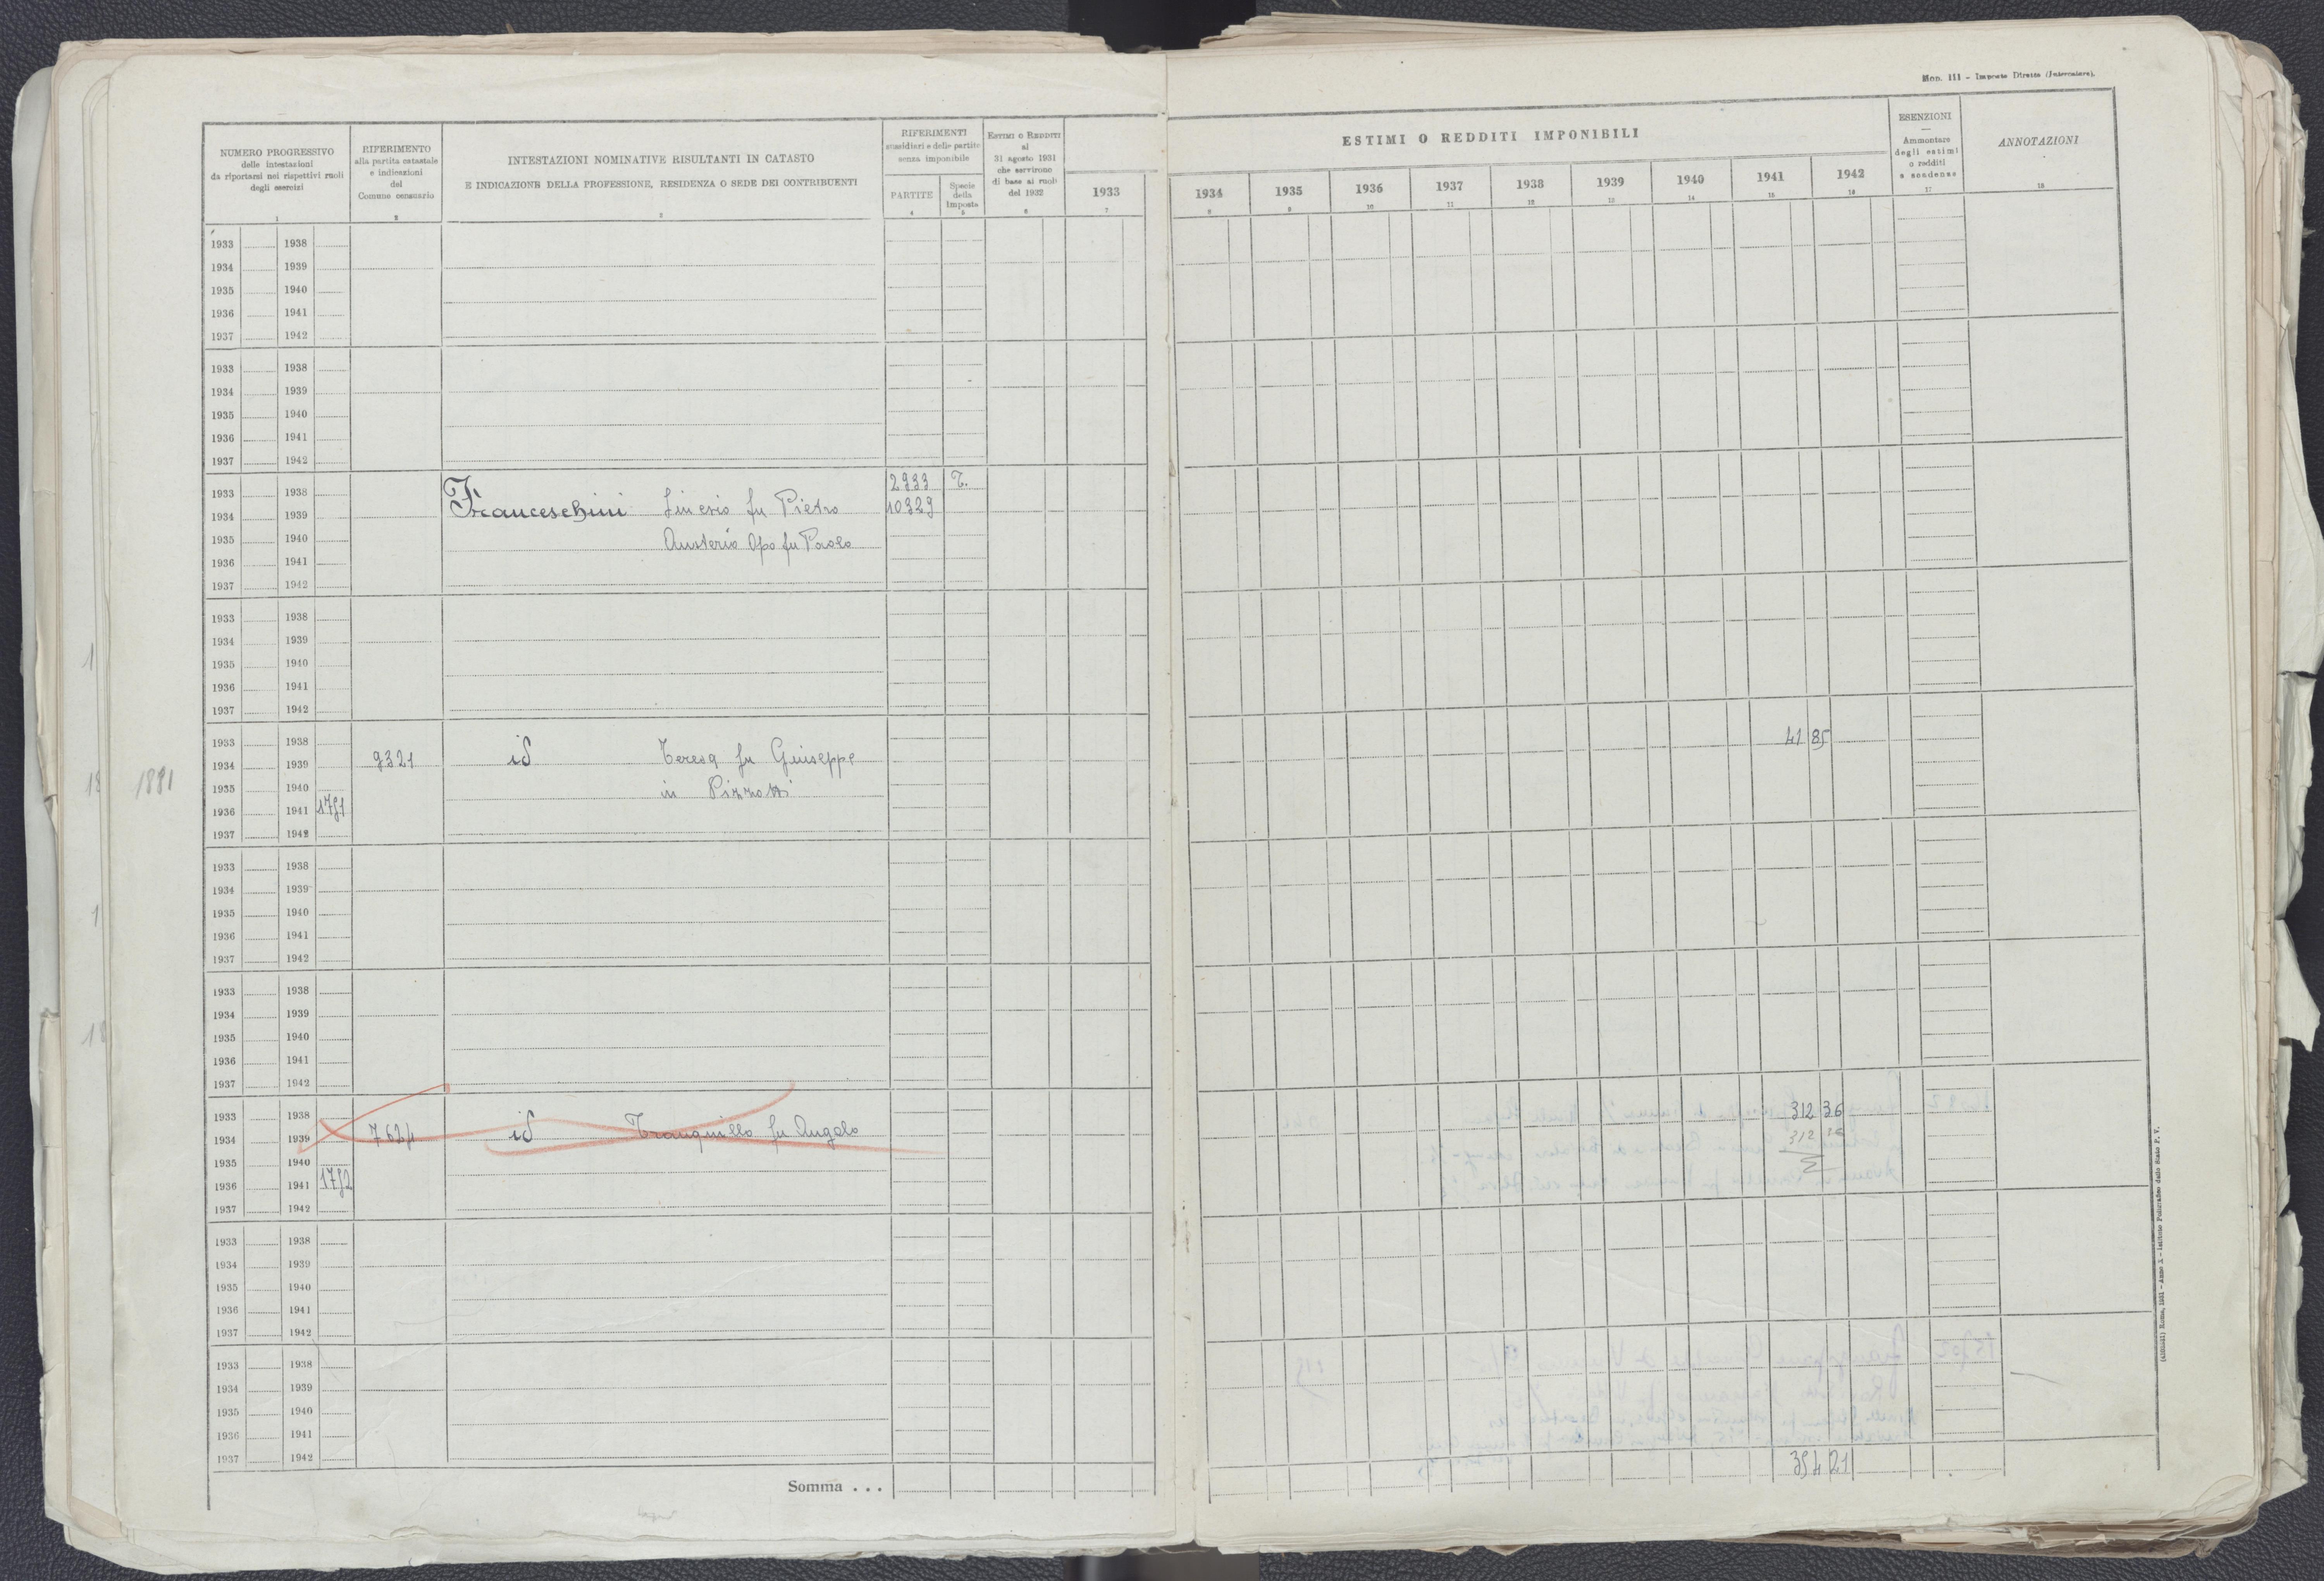 Mod. 111 - Imposte Dirette (Intercalare).
NUMERO PROGRESSIVO
delle intestazioni
da riportarsi nei rispettivi ruoli
degli esercizi
1
RIFERIMENTO
alla partita catastale
e indicazioni
del
Comune censuario
2
INTESTAZIONI NOMINATIVE RISULTANTI IN CATASTO
E INDICAZIONE DELLA PROFESSIONE, RESIDENZA O SEDE DEI CONTRIBUENTI
3
RIFERIMENTI
sussidiari e delle partite
senza imponibile
PARTITE
4
Specie
della
Imposta
5
ESTIMI O REDDITI
al
31 agosto 1931
che servirono
di base ai ruoli
del 1932
6
1933
7
ESTIMI O REDDITI IMPONIBILI
1934 1935 1936 1937 1938 1939 1940 1941 1942
8 9 10 11 12 13 14 15 16
ESENZIONI
Ammontare
degli estimi
o redditi
a scadenza
17
ANNOTAZIONI
18
1933 1938
1934 1939
1935 1940
1936 1941
1937 1942
1933 1938
1934 1939
1935 1940
1936 1941
1937 1942
1933 1938 2933 T.
1934 1939 Franceschini fu Pietro 10329
1935 1940 fu Paolo
1936 1941
1937 1942
1933 1938
1934 1939
1935 1940
1936 1941
1937 1942
1933 1938 41 85
1934 1939 9321 id Teresa fu Giuseppe
1881 1935 1940 in Pizzotti
1936 1941 1791
1937 1942
1933 1938
1934 1939
1935 1940
1936 1941
1937 1942
1933 1938
1934 1939
1935 1940
1936 1941
1937 1942
1933 1938 312 36
1934 1939 7624 id Tranquillo fu Angelo 312 36
1935 1940
1936 1941 1792
1937 1942
1933 1938
1934 1939
1935 1940
1936 1941
1937 1942
1933 1938
1934 1939
1935 1940
1936 1941
1937 1942
Somma . . . 354 21